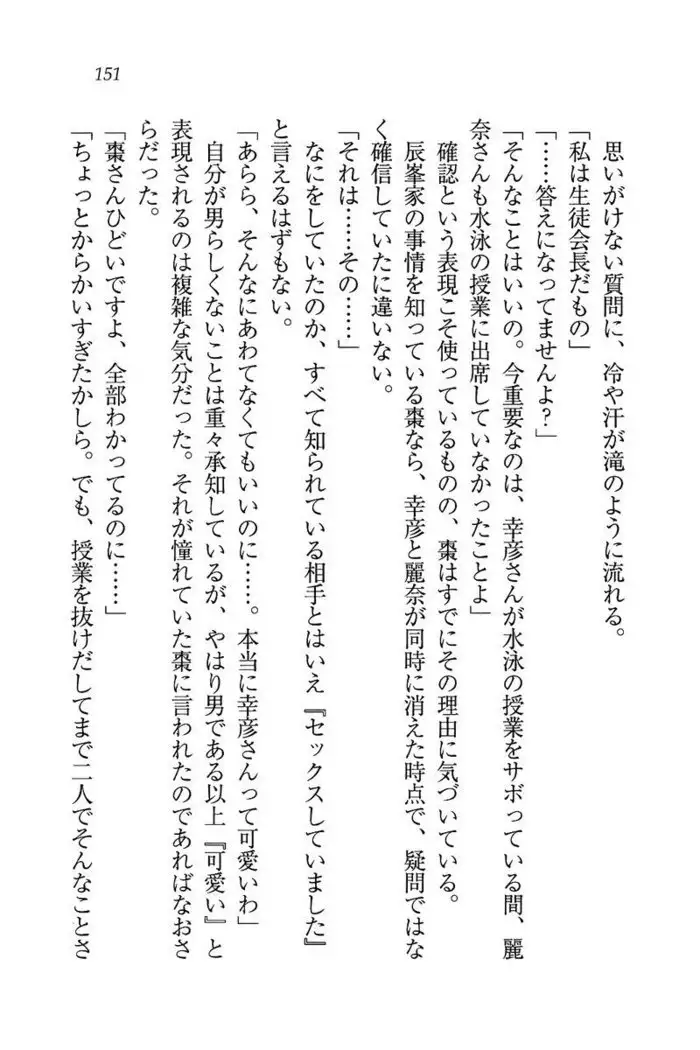 151
思いがけない質問に、冷や汗が滝のように流れる。
「私は生徒会長だもの」
「……答えになってませんよ？」
「そんなことはいいの。今重要なのは、幸彦さんが水泳の授業をサボっている間、麗
奈さんも水泳の授業に出席していなかったことよ」
確認という表現こそ使っているものの、棗はすでにその理由に気づいている。
辰峯家の事情を知っている棗なら、幸彦と麗奈が同時に消えた時点で、疑問ではな
く確信していたに違いない。
「それは……その……」
なにをしていたのか、すべて知られている相手とはいえ『セックスしていました』
と言えるはずもない。
「あらら、そんなにあわてなくてもいいのに……。本当に幸彦さんって可愛いわ」
自分が男らしくないことは重々承知しているが、やはり男である以上『可愛い』と
表現されるのは複雑な気分だった。それが憧れていた棗に言われたのであればなおさ
らだった。
「棗さんひどいですよ、全部わかってるのに……」
「ちょっとからかいすぎたかしら。でも、授業を抜けだしてまで二人でそんなことさ